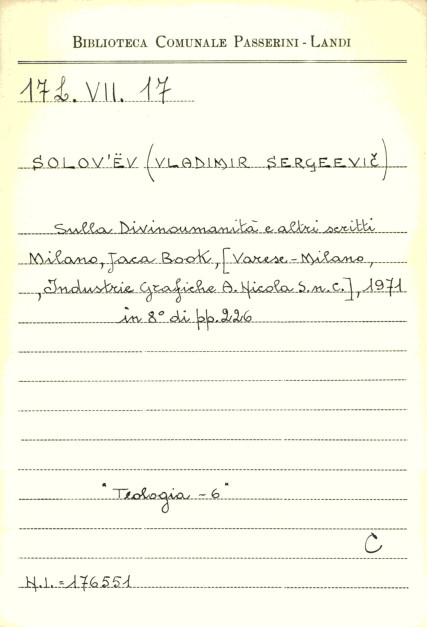 BIBLIOTECA COMUNALE PASSERINI - LANDI
17 L. VII. 17
SOLOV'ËV (VLADIMIR SERGEEVIČ)
Sulla Divinoumanità e altri scritti
Milano, Jaca Book, [Varese - Milano,
, Industrie Grafiche A. Nicola S.n.c.], 1971
in 8° di pp. 226
"Teologia - 6"
C
N.I. = 176551